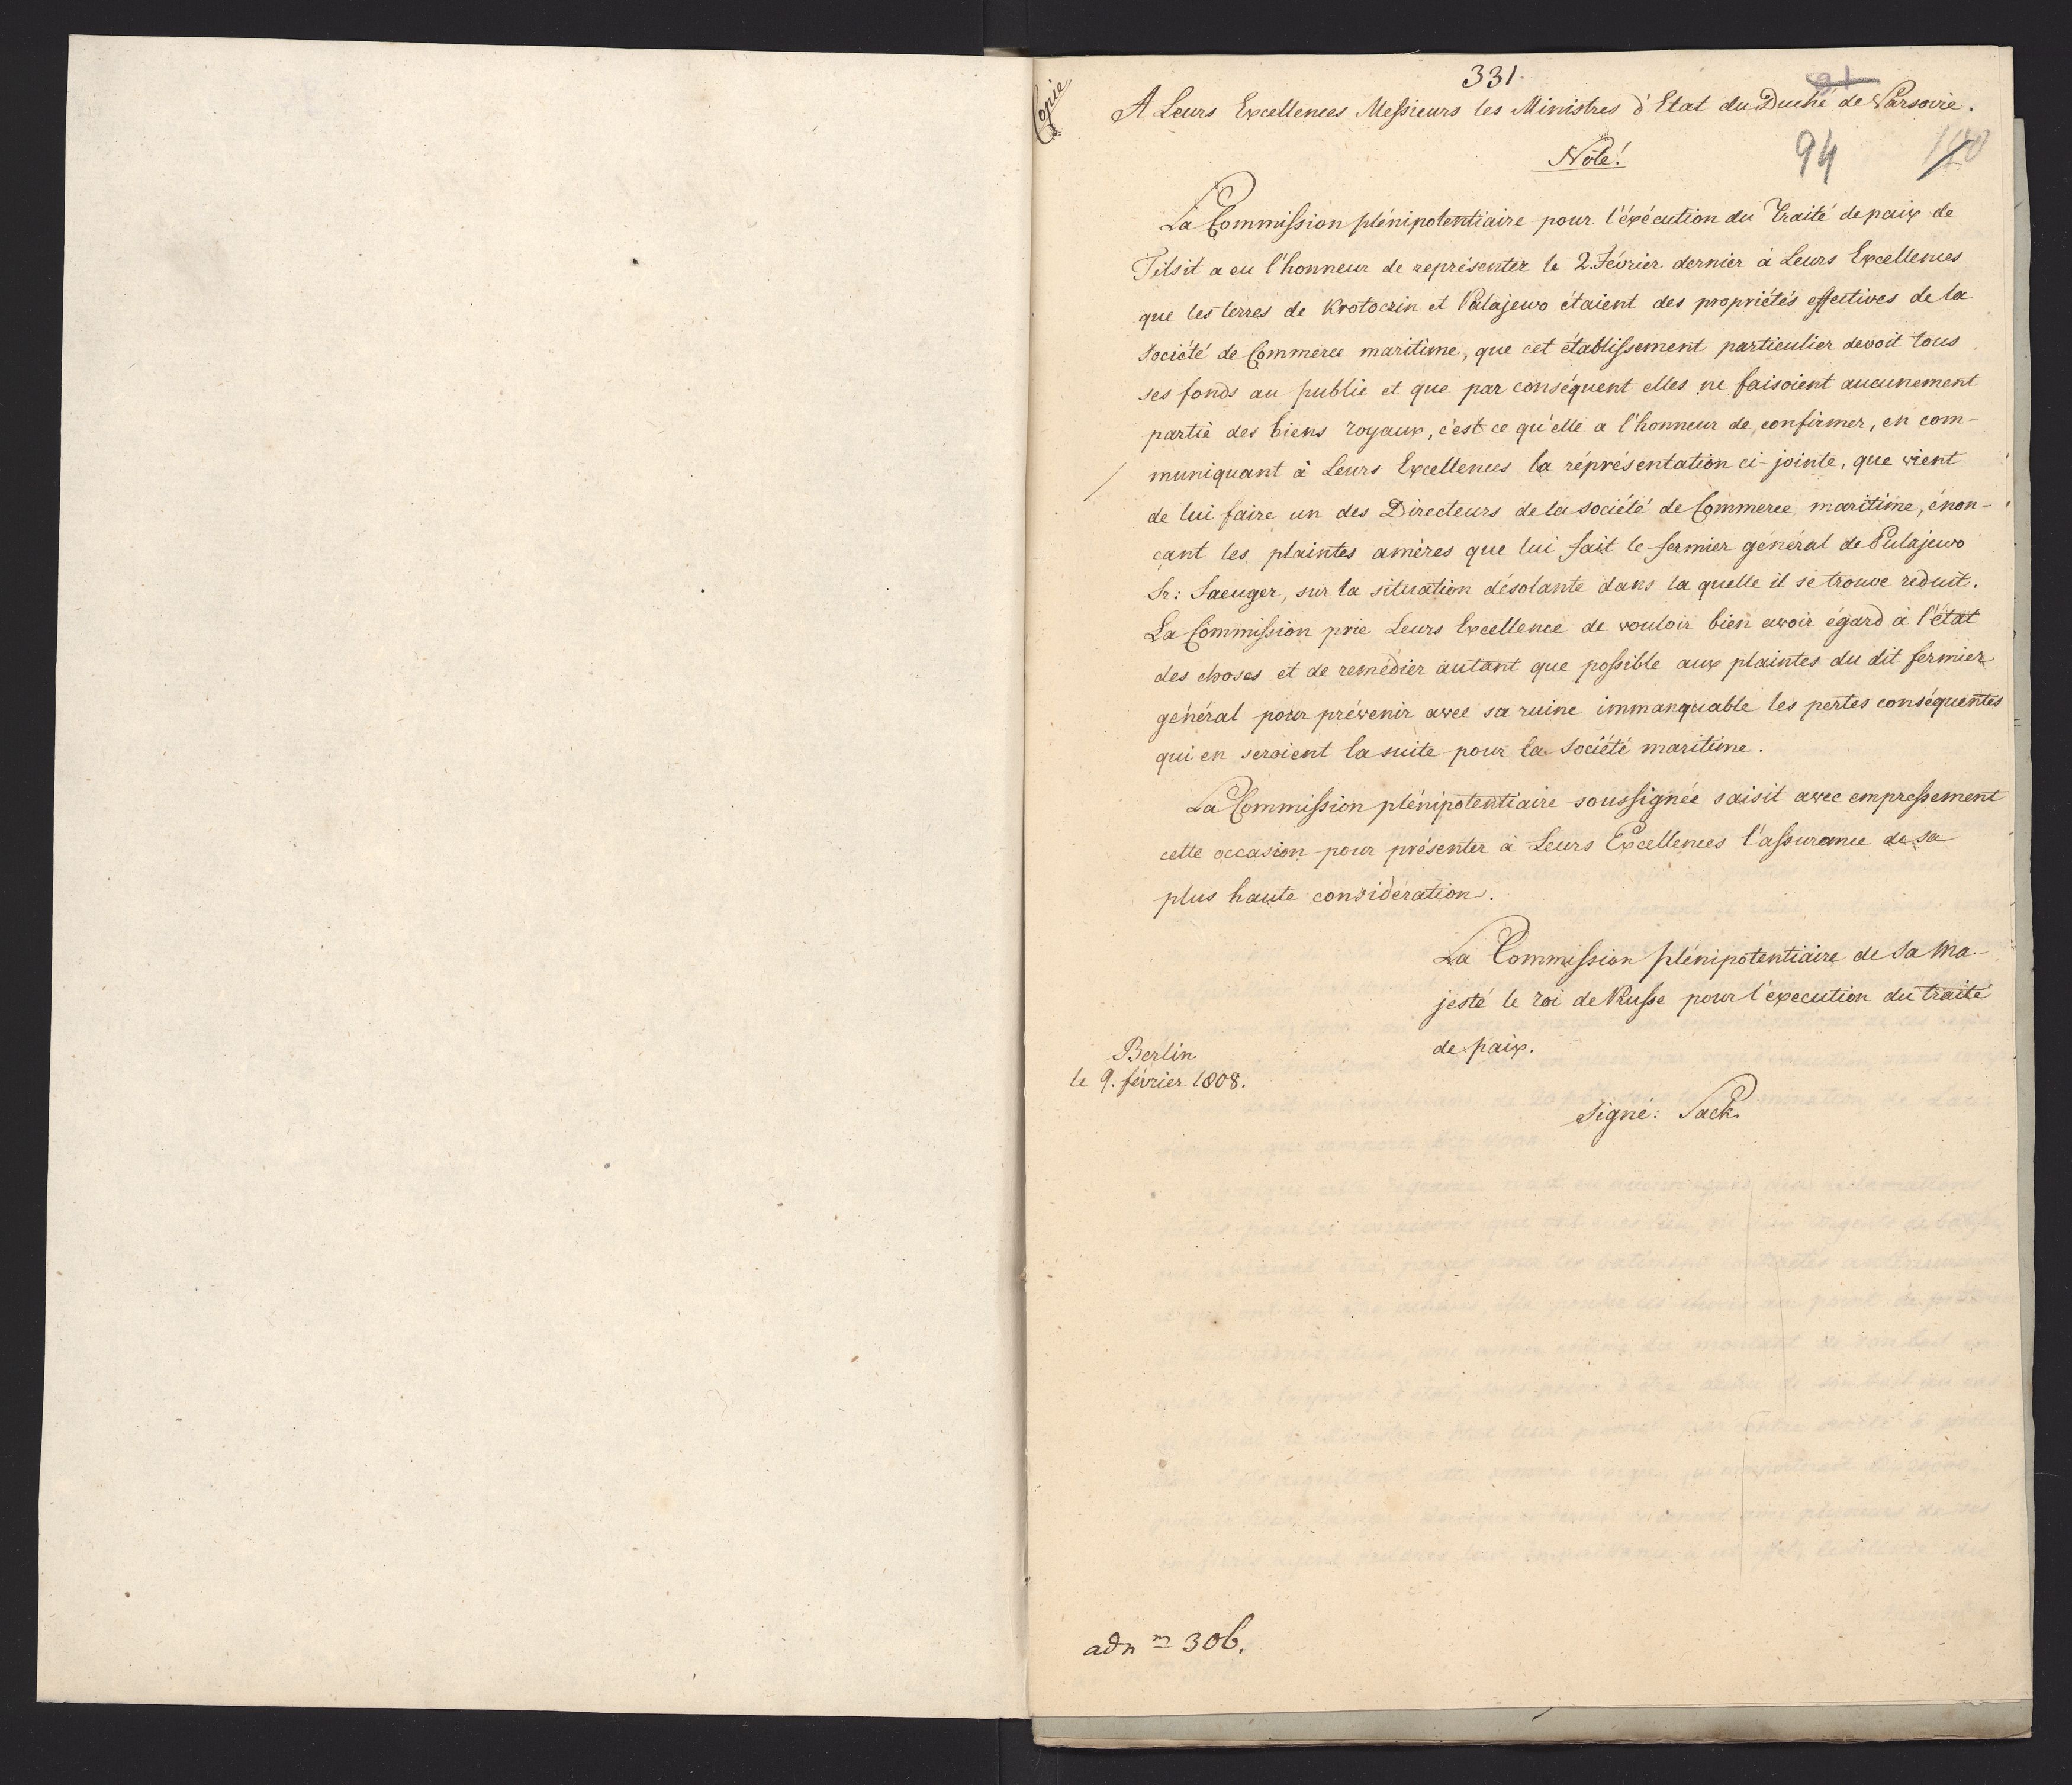 Copie
331.
A Leurs Excellences Messieurs les Ministres d'Etat du Duché de Varsovie.
Note!
94
La Commission plénipotentiaire pour l'éxécution du Traité de paix de
Tilsit a eu l'honneur de représenter le 2. Février dernier à Leurs Excellences
que les terres de Krotoczin et Palajewo étaient des propriétés effectives de la
société de Commerce maritime, que cet établissement particulier devoit tous
ses fonds au public et que par conséquent elles ne faisoient aucunement
partie des biens royaux, c'est ce qu'elle a l'honneur de confirmer, en com-
muniquant à Leurs Excellences la réprésentation ci-jointe, que vient
de lui faire un des Directeurs de la société de Commerce maritime, énon-
çant les plaintes amères que lui fait le fermier général de Pulajewo
Sr: Saenger, sur la situation désolante dans la quelle il se trouve reduit.
La Commission prie Leurs Excellence de vouloir bien avoir égard à l'état
des choses et de remédier autant que possible aux plaintes du dit fermier
général pour prévenir avec sa ruine immanquable les pertes conséquentes
qui en seroient la suite pour la Société maritime.
La Commission plénipotentiaire soussignée saisit avec empressement
cette occasion pour présenter à Leurs Excellences l'assurance de sa
plus haute considération.
La Commission plénipotentiaire de Sa Ma-
jesté le roi de Prusse pour l'execution du traité
de paix.
Berlin
le 9. février 1808.
Signé: Sack.
adn m 306.